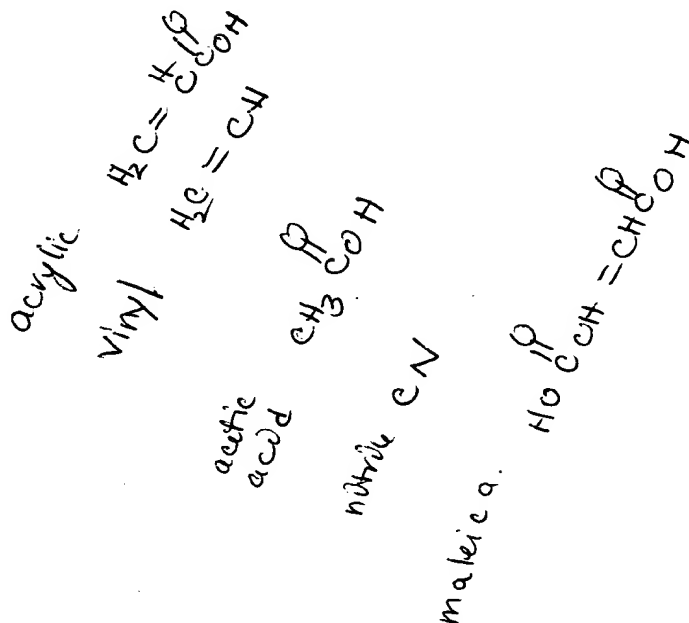 acrylic H₂C=CHCOH
O
vinyl H₂C=CH
acetic acid CH₃COH
O
nitrile CN
maleic a. HOCCH=CHCOH
O O